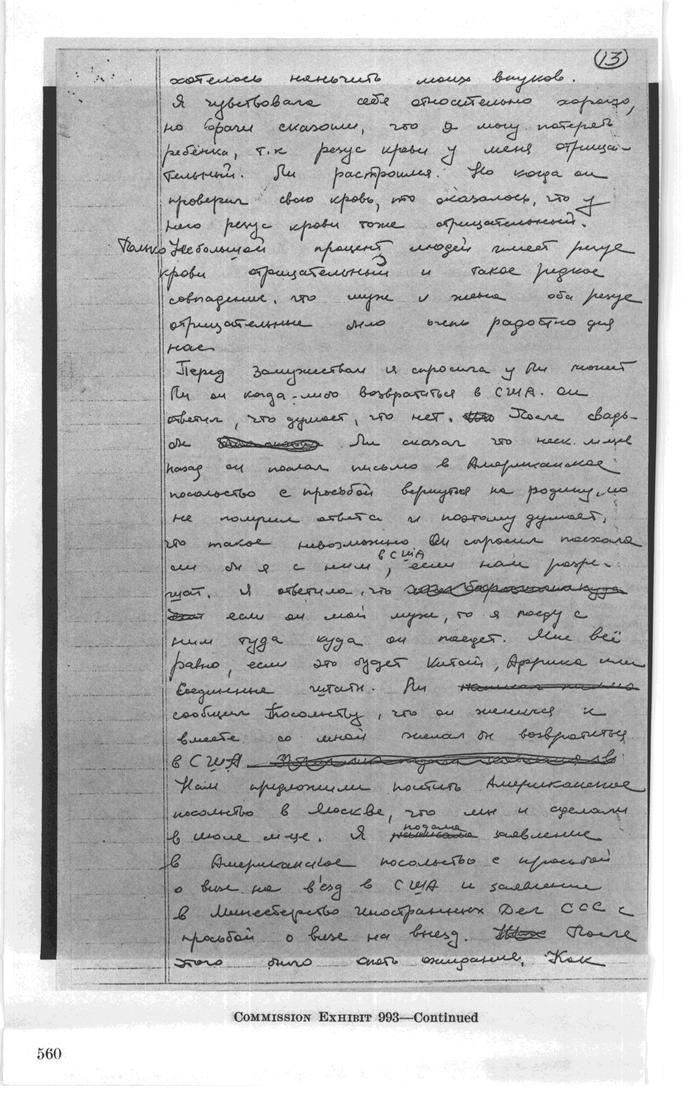 13
хотелось няньчить моих внуков.
Я чувствовала себя относительно хорошо,
но врачи сказали, что я могу потерять
ребёнка, т.к резус крови у меня отрица-
тельный. Ли расстроился. Но когда он
проверил свою кровь, то оказалось, что у
него резус крови тоже отрицательный.
Только небольшой процент людей имеет резус
крови отрицательный и такое редкое
совпадение, что муж и жена оба резус
отрицательные было очень радостно для
нас.
Перед замужеством я спросила у Ли может
ли он когда-либо возвратиться в США. Он
ответил, что думает, что нет. После свадь-
бы Ли сказал что неск. м-цев
назад он послал письмо в Американское
посольство с просьбой вернуться на родину, но
не получил ответа и поэтому думает,
что такое невозможно. Он спросил поехала
ли бы я с ним в США, если нам разре-
шат. Я ответила, что
если он мой муж, то я поеду с
ним туда куда он поедет. Мне всё
равно, если это будет Китай, Африка или
Соединенные штаты. Ли
сообщил Посольству, что он женился и
вместе со мной желал бы возвратиться
в США
Нам предложили посетить Американское
посольство в Москве, что мы и сделали
в июле м-це. Я подала заявление
в Американское посольство с просьбой
о визе на в'езд в США и заявление
в Министерство Иностранных Дел СССР с
просьбой о визе на выезд. После
этого было опять ожидание. Как
COMMISSION EXHIBIT 993—Continued
560